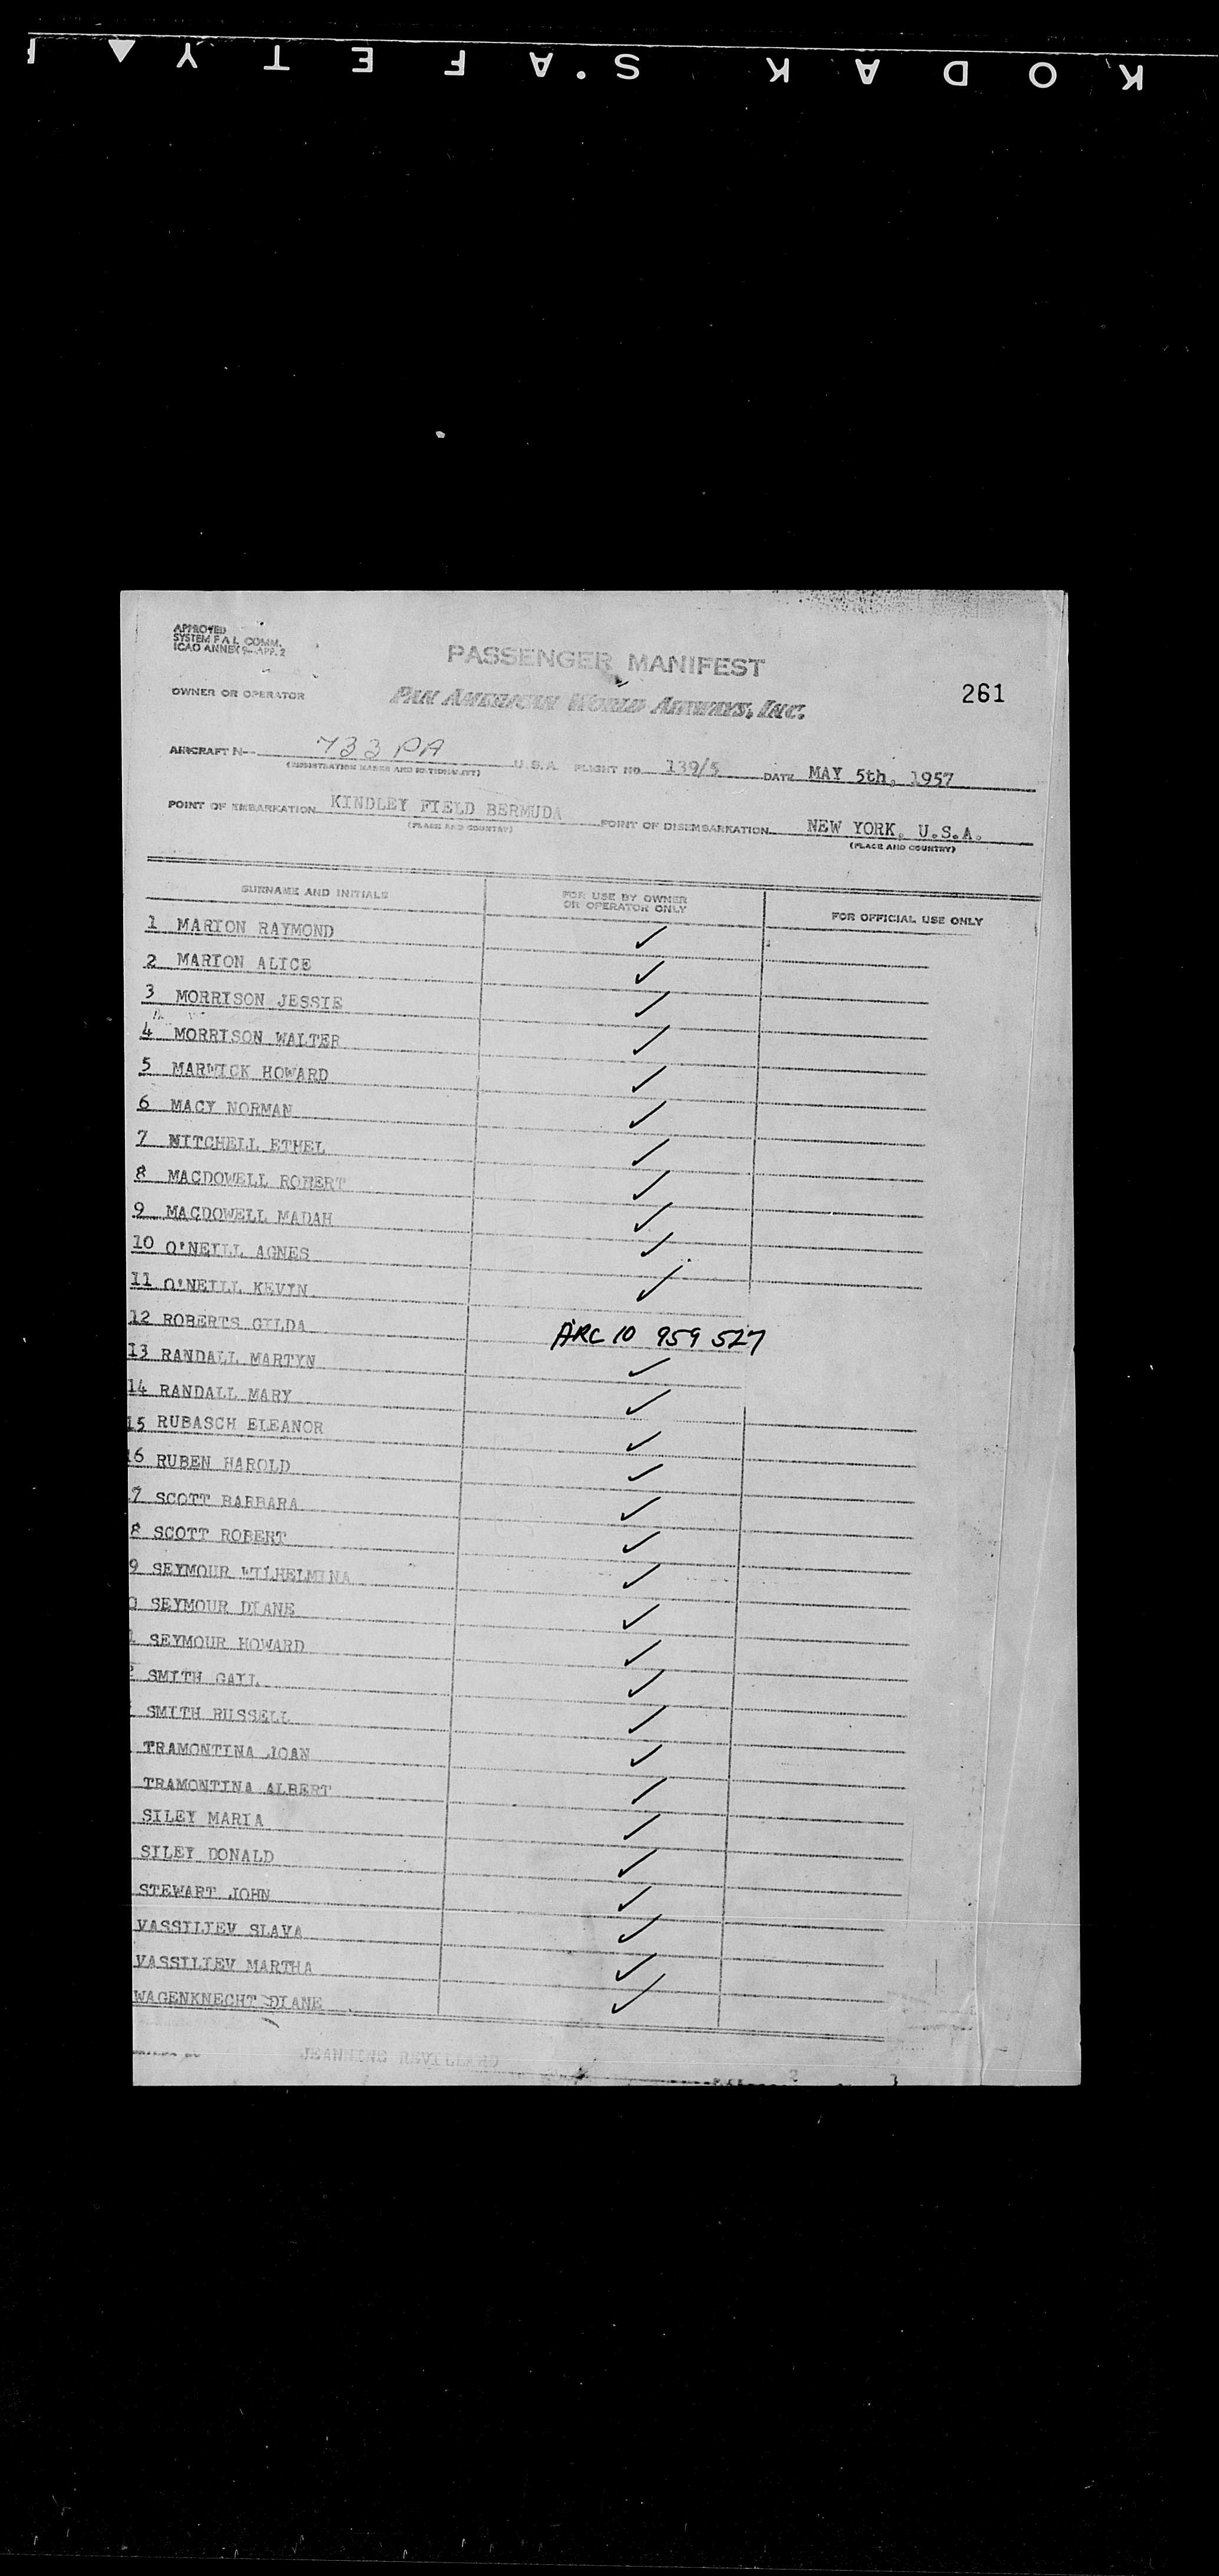 KODAK S.A.FETY
APPROVED
SYSTEM F A L COMM.
ICAO ANNEX 9—APP. 2
PASSENGER MANIFEST
261
OWNER OR OPERATOR
PAN AMERICAN WORLD AIRWAYS, INC.
AIRCRAFT N— 733 PA U.S.A. FLIGHT NO. 139/5 DATE MAY 5th, 1957
(REGISTRATION MARKS AND NATIONALITY)
POINT OF EMBARKATION KINDLEY FIELD BERMUDA POINT OF DISEMBARKATION NEW YORK, U.S.A.
(PLACE AND COUNTRY) (PLACE AND COUNTRY)
SURNAME AND INITIALS FOR USE BY OWNER OR OPERATOR ONLY FOR OFFICIAL USE ONLY
1 MARION RAYMOND ✓
2 MARION ALICE ✓
3 MORRISON JESSIE ✓
4 MORRISON WALTER ✓
5 MARWICK HOWARD ✓
6 MACY NORMAN ✓
7 MITCHELL ETHEL ✓
8 MACDOWELL ROBERT ✓
9 MACDOWELL MADAH ✓
10 O'NEILL AGNES ✓
11 O'NEILL KEVIN ✓
12 ROBERTS GILDA ARC 10 959 527
13 RANDALL MARTYN ✓
14 RANDALL MARY ✓
15 RUBASCH ELEANOR ✓
16 RUBEN HAROLD ✓
7 SCOTT BARBARA ✓
8 SCOTT ROBERT ✓
9 SEYMOUR WILHELMINA ✓
0 SEYMOUR DIANE ✓
1 SEYMOUR HOWARD ✓
2 SMITH GAIL ✓
SMITH RUSSELL ✓
TRAMONTINA JOAN ✓
TRAMONTINA ALBERT ✓
SILEY MARIA ✓
SILEY DONALD ✓
STEWART JOHN ✓
VASSILIEV SLAVA ✓
VASSILIEV MARTHA ✓
WAGENKNECHT DIANE ✓
JEANNINE REVILLARD